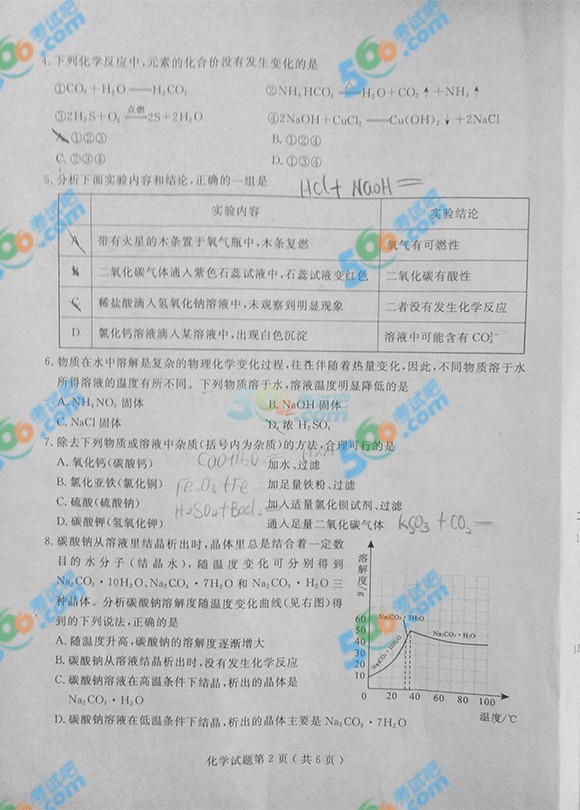 4.下列化学反应中,元素的化合价没有发生变化的是
①CO₂+H₂O══H₂CO₃ ②NH₄HCO₃══H₂O+CO₂↑+NH₃↑
③2H₂S+O₂点燃══2S+2H₂O ④2NaOH+CuCl₂══Cu(OH)₂↓+2NaCl
A.①②③ B.①②④
C.②③④ D.①③④
5.分析下面实验内容和结论,正确的一组是 HCl+NaOH=
实验内容 实验结论
A 带有火星的木条置于氧气瓶中,木条复燃 氧气有可燃性
二氧化碳气体通入紫色石蕊试液中,石蕊试液变红色 二氧化碳有酸性
C 稀盐酸滴入氢氧化钠溶液中,未观察到明显现象 二者没有发生化学反应
D 氯化钙溶液滴入某溶液中,出现白色沉淀 溶液中可能含有CO₃²⁻
6.物质在水中溶解是复杂的物理化学变化过程,往往伴随着热量变化,因此,不同物质溶于水
所得溶液的温度有所不同。下列物质溶于水,溶液温度明显降低的是
A.NH₄NO₃固体 B.NaOH固体
C.NaCl固体 D.浓H₂SO₄
7.除去下列物质或溶液中杂质(括号内为杂质)的方法,合理可行的是
A.氧化钙(碳酸钙) 加水、过滤
B.氯化亚铁(氯化铜) 加足量铁粉、过滤
C.硫酸(硫酸钠) H₂SO₄+BaCl₂= 加入适量氯化钡试剂、过滤
D.碳酸钾(氢氧化钾) 通入足量二氧化碳气体 K₂CO₃+CO₂=
8.碳酸钠从溶液里结晶析出时,晶体里总是结合着一定数
目的水分子(结晶水),随温度变化可分别得到
Na₂CO₃·10H₂O、Na₂CO₃·7H₂O和Na₂CO₃·H₂O三
种晶体。分析碳酸钠溶解度随温度变化曲线(见右图)得
到的下列说法,正确的是
A.随温度升高,碳酸钠的溶解度逐渐增大
B.碳酸钠从溶液结晶析出时,没有发生化学反应
C.碳酸钠溶液在高温条件下结晶,析出的晶体是
Na₂CO₃·H₂O
D.碳酸钠溶液在低温条件下结晶,析出的晶体主要是Na₂CO₃·7H₂O
溶解度/g
60
50
40
30
20
10
0 20 40 60 80 100
温度/℃
Na₂CO₃·7H₂O
Na₂CO₃·H₂O
Na₂CO₃·10H₂O
化学试题第2页(共6页)
考试吧
560.com